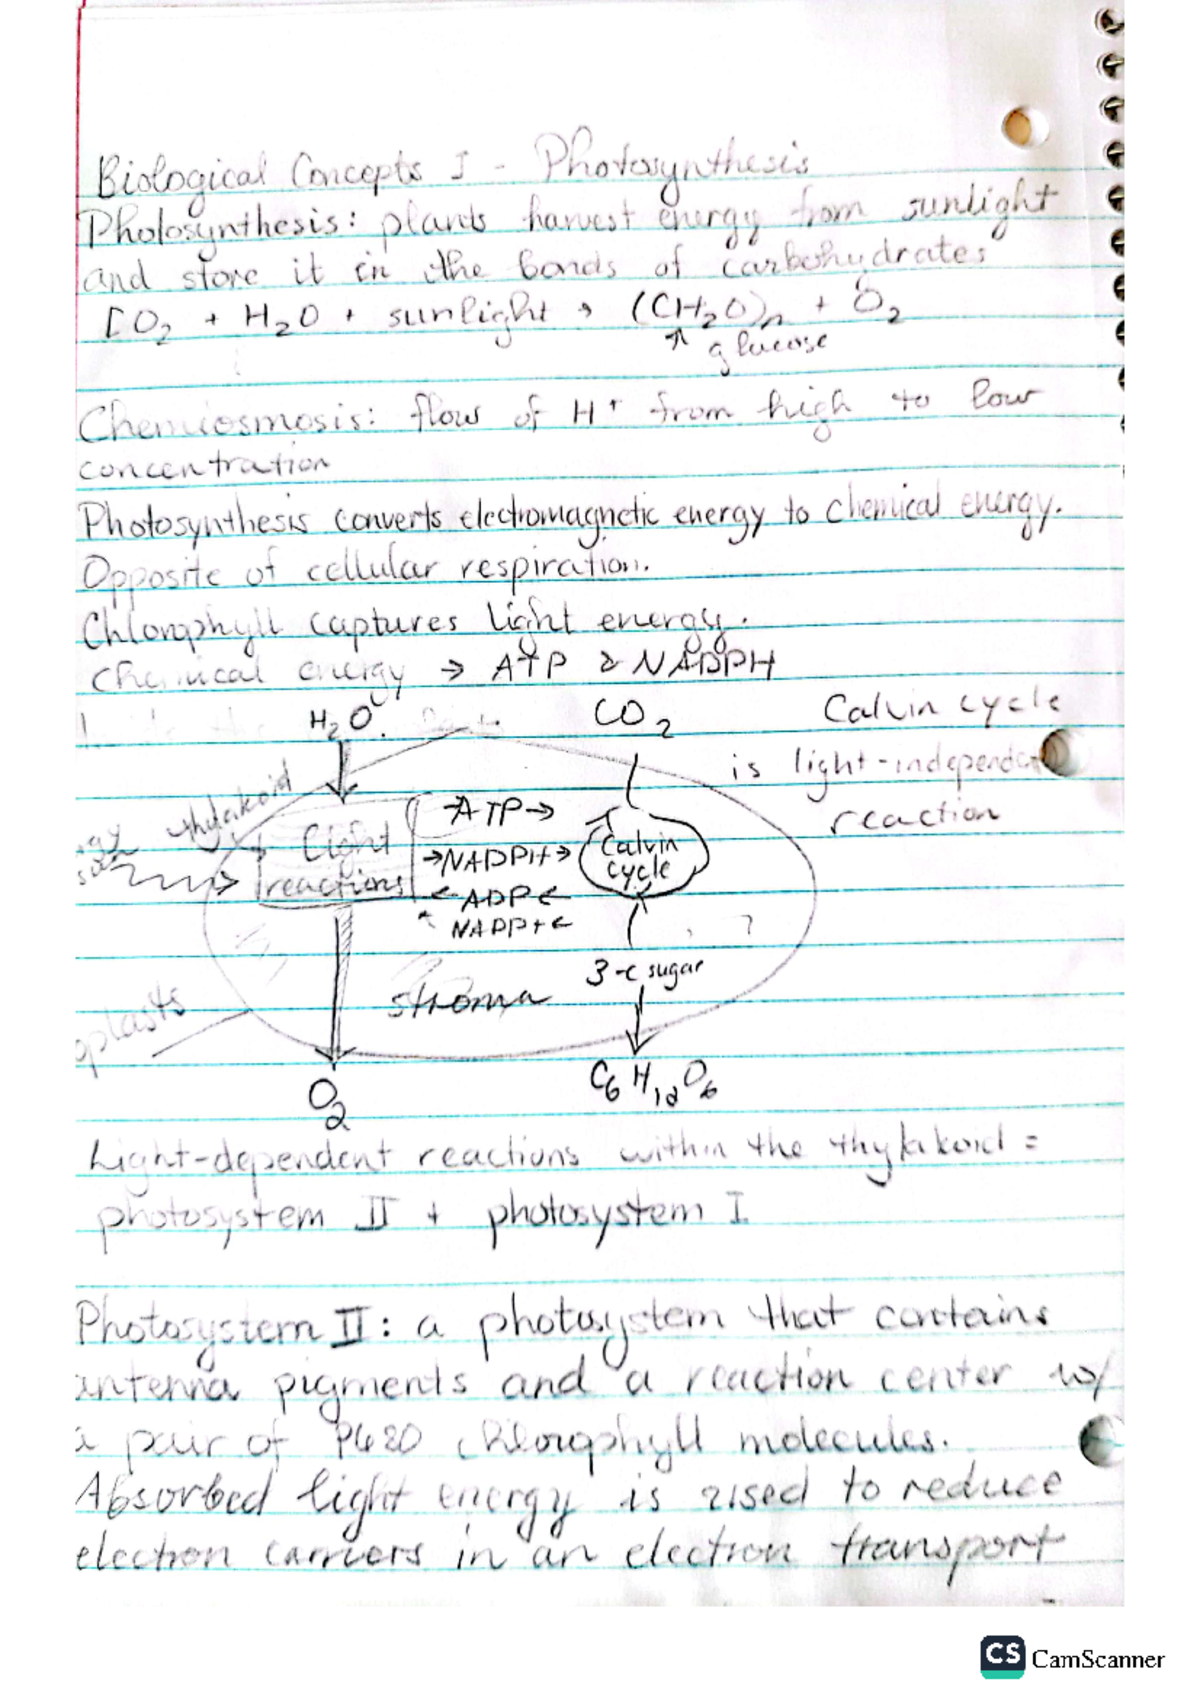 Biological Concepts I - Photosynthesis
Photosynthesis: plants harvest energy from sunlight
and store it in the bonds of carbohydrates
CO2 + H2O + sunlight → (CH2O)n + O2
↑ glucose
Chemiosmosis: flow of H+ from high to low
concentration
Photosynthesis converts electromagnetic energy to chemical energy.
Opposite of cellular respiration.
Chlorophyll captures light energy.
Chemical energy → ATP & NADPH
H2O
CO2
Calvin cycle
is light-independent
reaction
thylakoid
Light
reactions
→ATP→
→NADPH→
←ADP←
NADP+←
Calvin
cycle
3-c sugar
stroma
oplasts
O2
C6H12O6
Light-dependent reactions within the thylakoid =
photosystem II + photosystem I
Photosystem II: a photosystem that contains
antenna pigments and a reaction center w/
a pair of P680 chlorophyll molecules.
Absorbed light energy is used to reduce
electron carriers in an electron transport
CS CamScanner